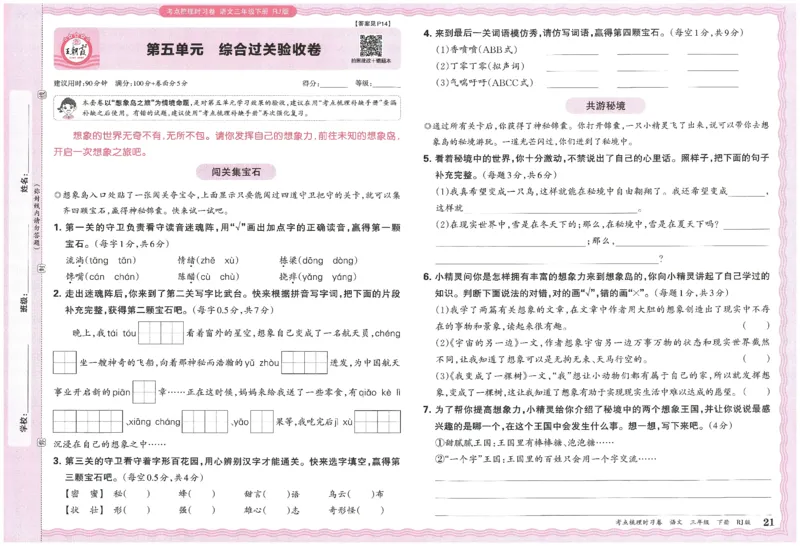 考点梳理时习卷 语文三年级下册 RJ版
王朝霞
【答案见P14】
第五单元 综合过关验收卷
建议用时:90分钟 满分:100分+卷面分5分
得分:________ 等级:________
本套卷以“想象岛之旅”为情境命题,是对第五单元学习效果的验收,建议在用“考点梳理补缺手册”查漏
补缺之后使用。有错的试题,建议使用“考点梳理补缺手册”再次强化复习。
想象的世界无奇不有,无所不包。请你发挥自己的想象力,前往未知的想象岛,
开启一次想象之旅吧。
闯关集宝石
◎想象岛入口处贴了一张闯关夺宝令,上面显示只要能闯过四道守卫把守的关卡,就可以集
齐四颗宝石,赢得神秘锦囊。快来试一试吧。
1. 第一关的守卫负责看守读音迷魂阵,用“√”画出加点字的正确读音,赢得第一颗
宝石。(每字1分,共6分)
流淌(tāng tǎn) 情绪(zhě xù) 栋梁(dōng dòng)
馋嘴(cán chán) 陈醋(cù chù) 挠痒(yāng yǎng)
2. 走出迷魂阵后,你来到了第二关写字比武台。快来根据拼音写字词,把下面的片段
补充完整,获得第二颗宝石吧。(每字0.5分,共7分)
晚上,我tái tóu 看着窗外的星空,想象自己变成了一名航天员,chéng
坐一艘神奇的飞船,向着那神秘而浩瀚的yǔ zhòu 进发,为中国航天
事业开启新的piān 章……正在这时候,妈妈来给我送了一些零食,有qiǎo kè lì
,xiāng cháng ,yāo 果等,我吃完后jì xù
沉浸在自己的想象之中……
3. 第三关的守卫看守着字形百花园,用心辨别汉字才能通关。快来选字填空,赢得第
三颗宝石吧。(每空0.5分,共4分)
【密 蜜】 秘( ) 蜂( ) 甜言( )语 乌云( )布
【状 壮】 形( ) 强( ) 雄心( )志 奇形怪( )
4. 来到最后一关词语模仿秀,请仿写词语,赢得第四颗宝石。(每空1分,共9分)
(1)香喷喷(ABB式)
(2)丁零丁零(拟声词)
(3)气喘吁吁(ABCC式)
共游秘境
◎通过所有关卡后,你获得了神秘锦囊。你打开锦囊,一只小精灵飞了出来,说可以带你去想
象岛的秘境游玩。一道光芒闪过,你们进到了秘境中。
5. 看着秘境中的世界,你十分激动,不禁说出了自己的心里话。照样子,把下面的句子
补充完整。(每题3分,共6分)
(1)我真希望变成一只鸟,这样就能在秘境中自由翱翔了。我还希望变成________,
这样就________________。
(2)在现实世界中,雪是在冬天下的;那么,在秘境中,雪是在夏天下吗?________
________________;那么,________________
________________?
6. 小精灵问你是怎样拥有丰富的想象力来到想象岛的,你向小精灵讲起了自己学过的
知识。判断下面说法的对错,对的画“√”,错的画“×”。(每题1分,共3分)
(1)学了两篇有关想象的文章,在文章中作者用大胆的想象创造出了现实中不存
在的事物和景象,读起来很有趣。 ( )
(2)《宇宙的另一边》一文,作者想象宇宙另一边万事万物的状态和现实世界截然
不同,让我知道了想象可以是无拘无束、天马行空的。 ( )
(3)《我变成了一棵树》一文,“我”想让小动物们都有属于自己的家,所以就发挥想
象,变成了一棵树,这让我知道了想象有助于实现现实生活中难以达成的愿望。( )
7. 为了帮你提高想象力,小精灵给你介绍了秘境中的两个想象王国,并让你说说最感
兴趣的是哪一个,在这个王国中会发生什么事。想一想,写下来吧。(4分)
①甜腻腻王国:王国里有棒棒糖、泡泡糖……
②“一个字”王国:王国里的百姓只会用一个字交流……
考点梳理时习卷 语文 三年级 下册 RJ版 21
姓名:
班级:
学校: